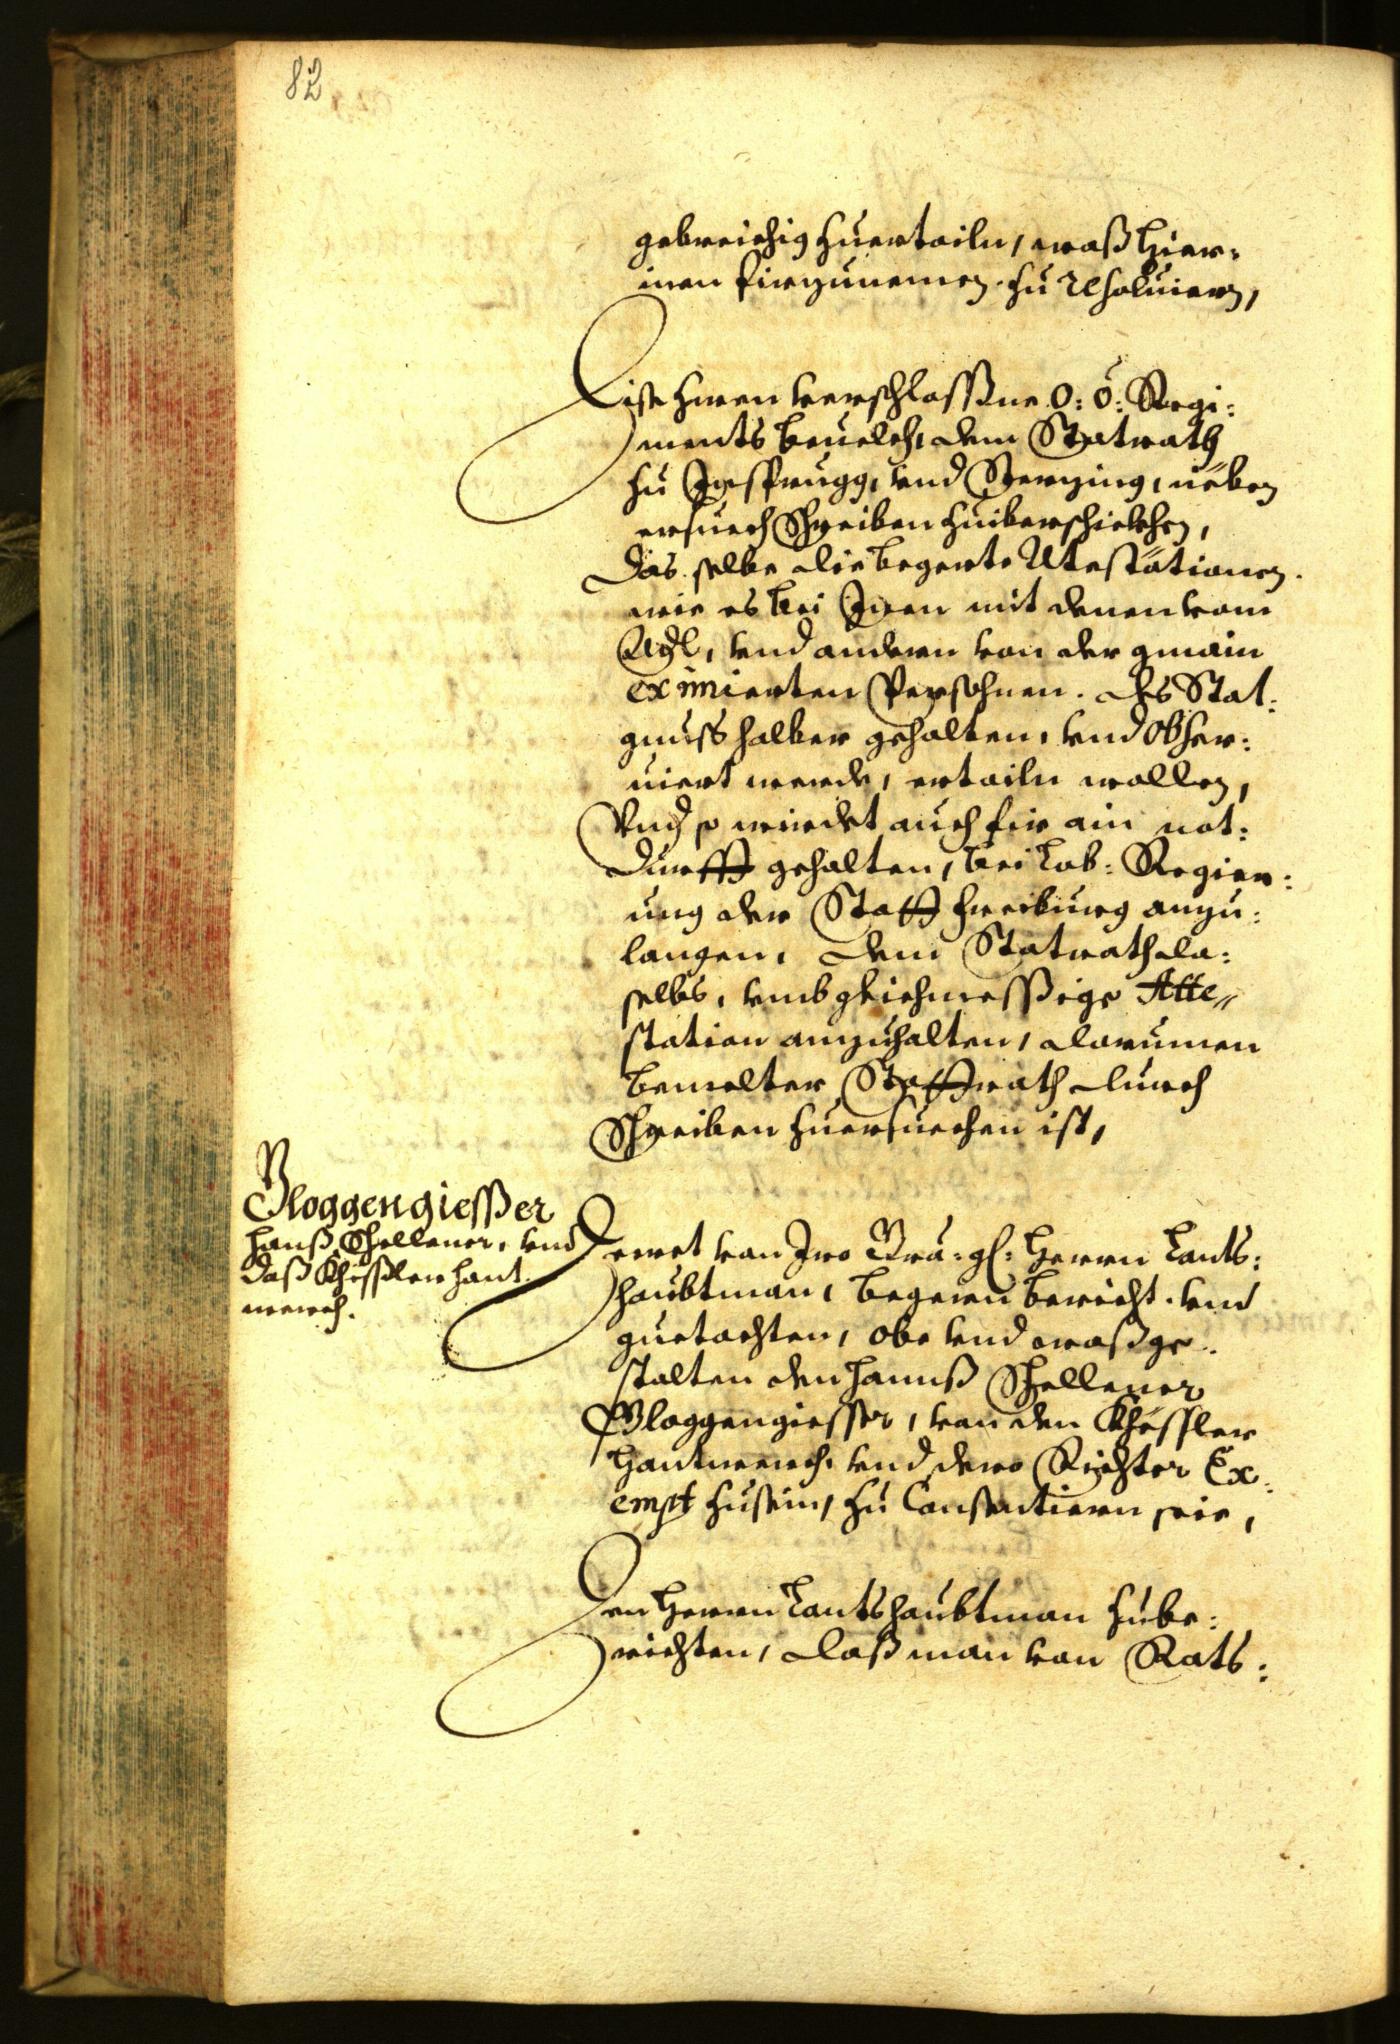 82
gebreichig zuertailn, waß hier=
inen firzunemen. zu resoluiern,
Dise zwen verschlossne O: Ö: Regi:
ments beuelch, dem Statrath
zu Insprugg, vnd Sterzing, neben
ersuech Schreiben zuiberschickhen,
Das selbe die begerte Atestationen.
wie es bei Inen mit denen vom
Adl, vnd andern von der gmain
eximierten Persohnen. des Stat=
gnuss halber gehalten, vnd obser=
uiert werde, ertailn wollen,
Vnd so wirdet auch fir ain not=
durfft gehalten, bei Lob: Regier=
ung der Statt Freiburg anzu=
langen, dem Statrath da=
selbs, vmb gleichmessige Atte=
station anzuhalten, darumen
bemelter Stattrath durch
Schreiben zuersuechen ist,
Gloggengiesser
Hanß Schellener, vnd
daß Khessler hant
werch.
Herrn Lants=
haubtman, begern bericht vnd
guetachten, obe vnd waßge=
stalten den Hannß Schellener
Gloggengiesser, von den Khessler
Hantwerch, vnd dero Richter Ex=
empt zusein, zu Consentiern seie,
Den Herrn Lantshaubtman zube=
richten, daß man von Rats=